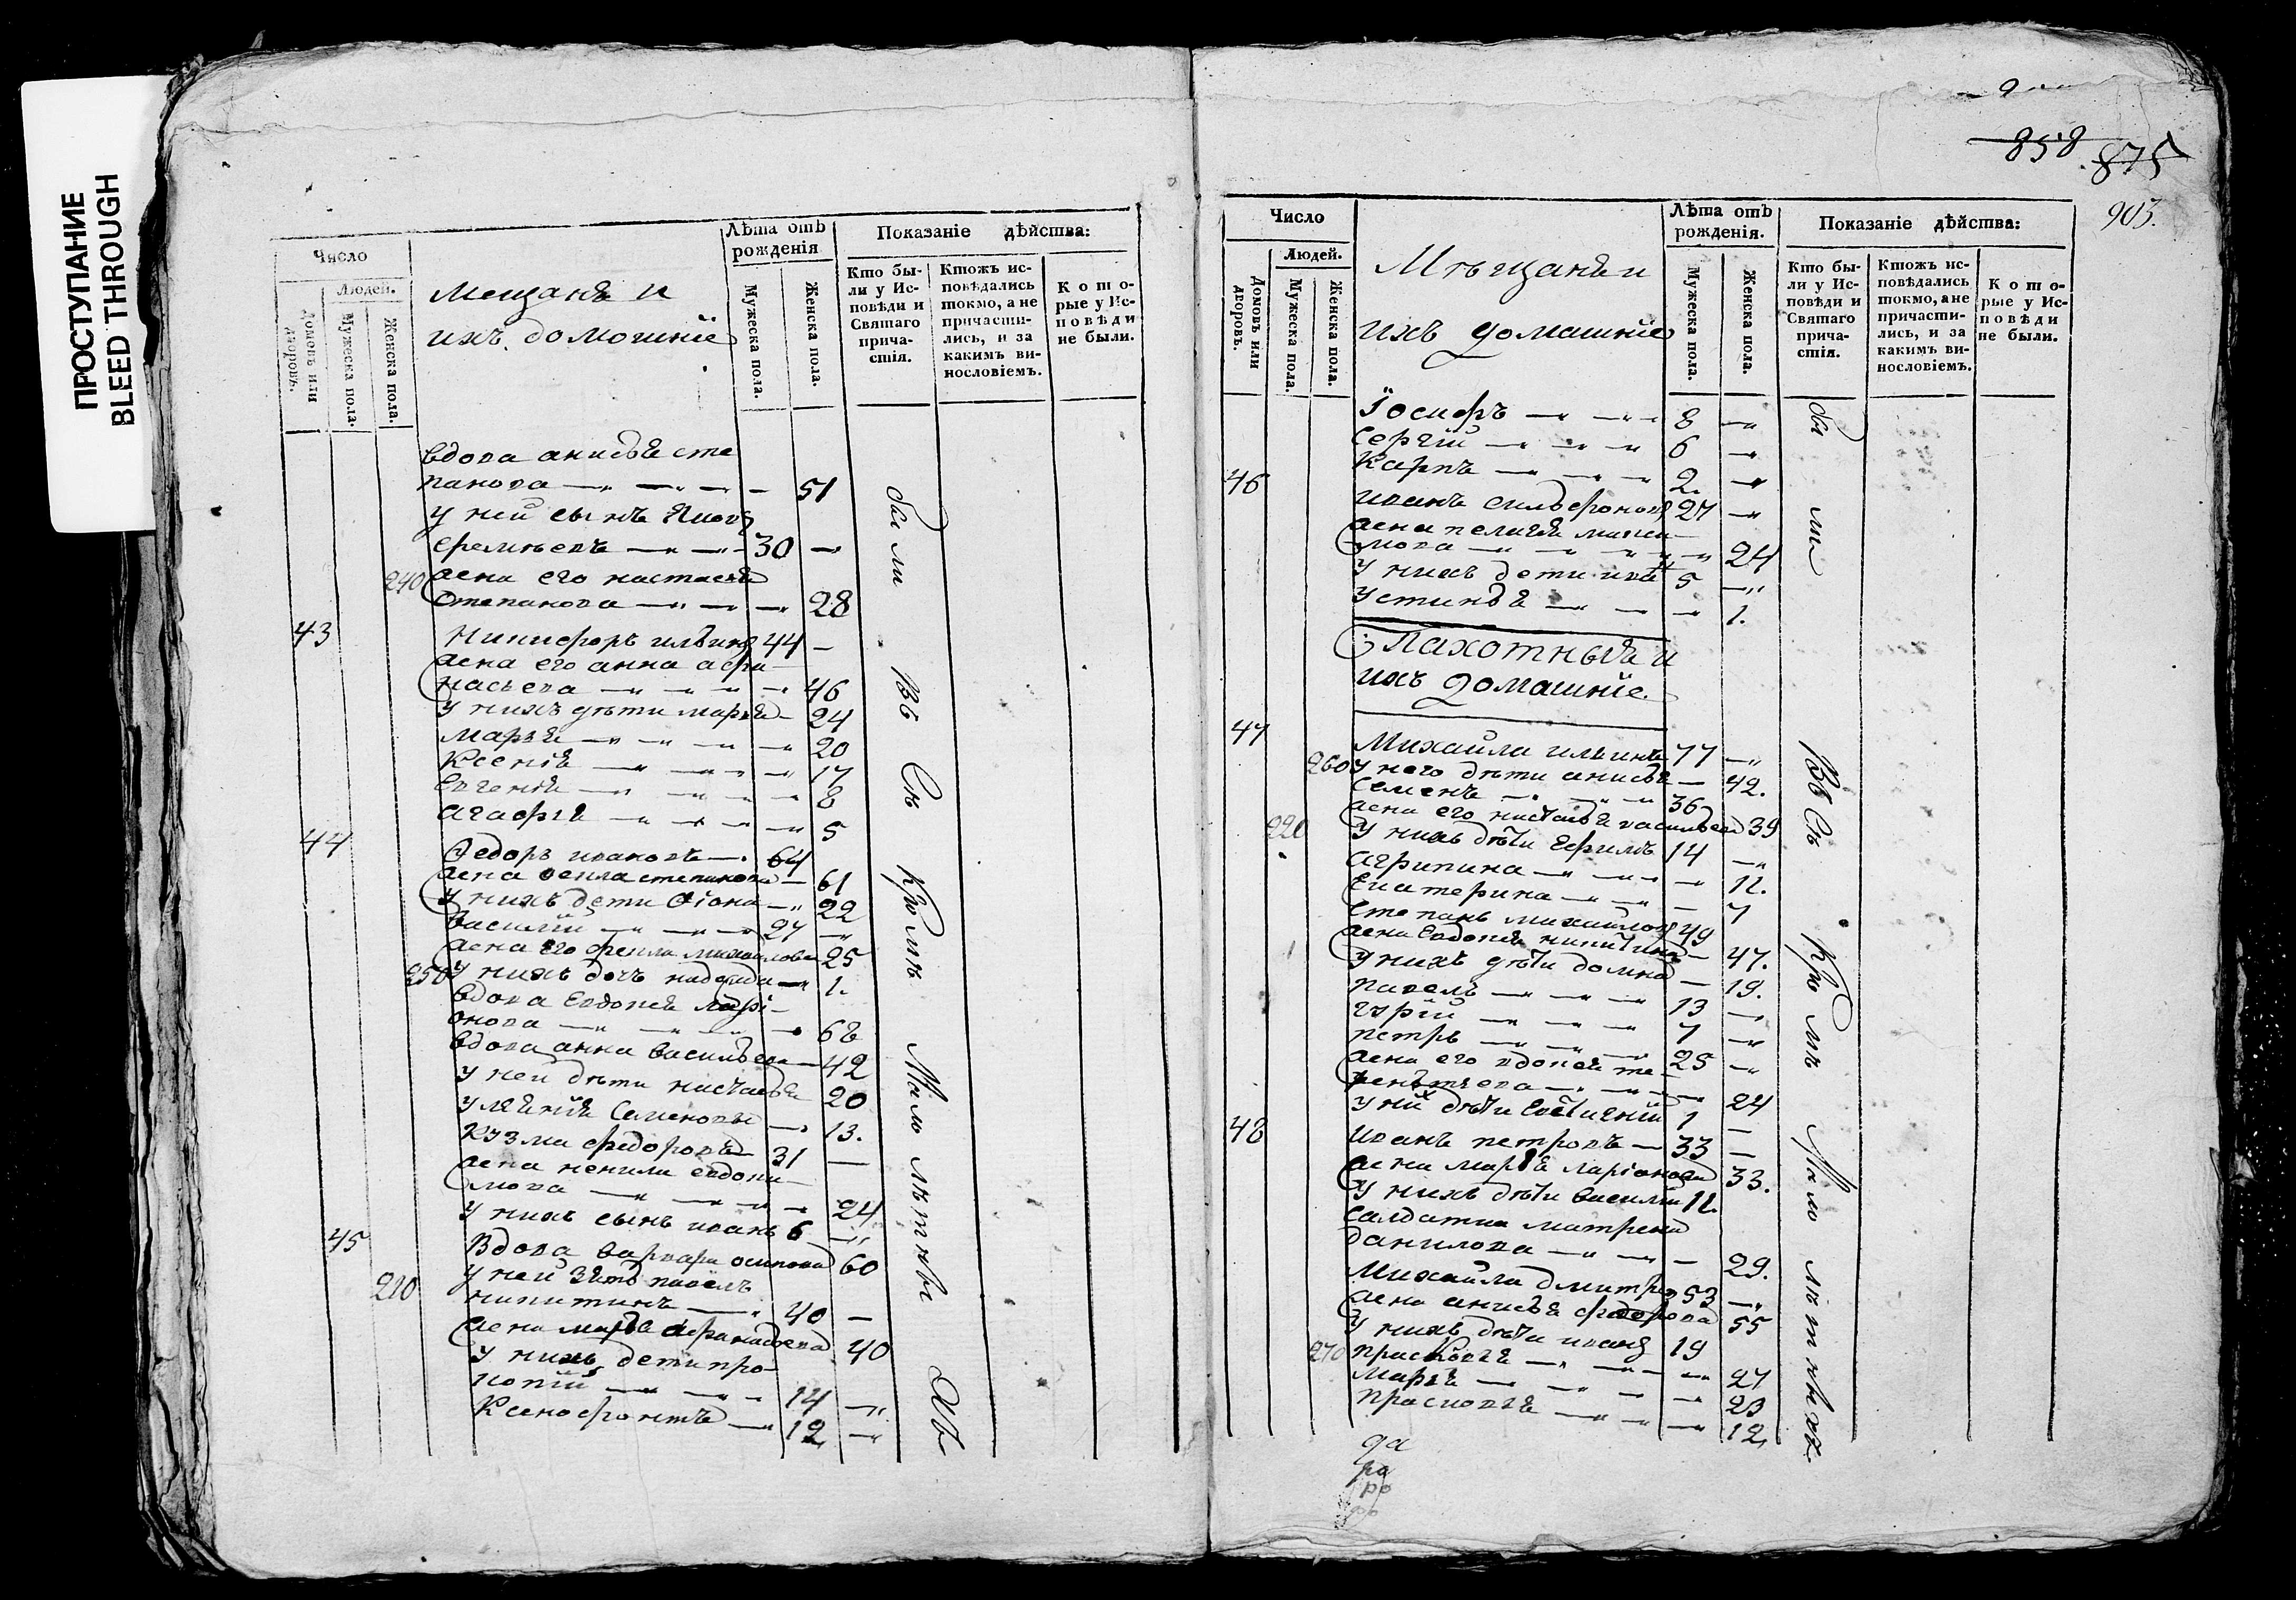 ПРОСТУПАНИЕ
BLEED THROUGH
Число
Людей.
Домовъ или дворовъ.
Мужеска пола.
Женска пола.
мещанѣ и
ихъ домошнїе
Лѣта отъ рожденія
Мужеска пола.
Женска пола.
Показаніе дѣйства:
Кто были у Исповѣди и Святаго причастія.
Ктожъ исповѣдались токмо, а не причастились, и за какимъ винословіемъ.
Которые у Исповѣди не были.
вдова анисья сте
панова 51
у ней сынъ
еремѣевъ 30
240 жена его настасья
степанова 28
43 Никифоръ ильинъ 44
жена его анна афа
насьева 46
у нихъ дѣти марья 24
марья 20
Ксенія 17
Евгенія 8
агафья 5
44 Федоръ ивановъ 64
жена фекла степанова 61
у нихъ дети 22
василїй 27
жена его фекла михайлова 25
250 у нихъ дочь надежда 1.
вдова Евдокея лари
онова 62
вдова анна васильева 42
у ней дѣти настасья 20
улянія Семеновы 13.
Кузма федоровъ 31
жена ненила евдоки
мова 24
у нихъ сынъ иванъ 6
45 Вдова варвара осипова 60
210 у ней зять павелъ
никитинъ 40
жена марья афанасьева 40
у нихъ дети про
копїй 14
Ксенофонтъ 12
были
Всѣ
Кромѣ
Мало
лѣтны
хъ
858 875
903.
Число
Людей.
Домовъ или дворовъ.
Мужеска пола.
Женска пола.
Мѣщанѣ и
ихъ домашнїе
Лѣта отъ рожденія.
Мужеска пола.
Женска пола.
Показаніе дѣйства:
Кто были у Исповѣди и Святаго причастія.
Ктожъ исповѣдались токмо, а не причастились, и за какимъ винословіемъ.
Которые у Исповѣди не были.
Їосифъ 8
Сергїй 6
Карпъ 2.
46 иванъ 27
жена пелагея макси
мова 24
у нихъ дети иванъ 5
устинья 1.
Пахотныя и
ихъ домашнїе.
47 Михайла ильинъ 77
260 у него дѣти анисья 42.
Семенъ 36
жена его настасья васильева 39
220 у нихъ дѣти Ефимъ 14
агрипина 12.
Екатерина 7
степанъ михайловъ 49
жена Евдокея никитина 47.
у нихъ дѣти домна 19.
павелъ 13
гурїй 7
петръ 25
жена его евдокея те
рентьева 24
у них дѣти 1
48 иванъ петровъ 33
жена марья ларіонова 33.
у нихъ дѣти василїй 12.
салдатка матрена
данилова 29.
Михайла дмитрев 53
жена анисья федорова 55
у нихъ дѣти иванъ 19
270 прасковья 27
марья 23
прасковья 12,
да
ра
ро
бы
ли
Всѣ
Кромѣ
Мало
лѣтныхъ.